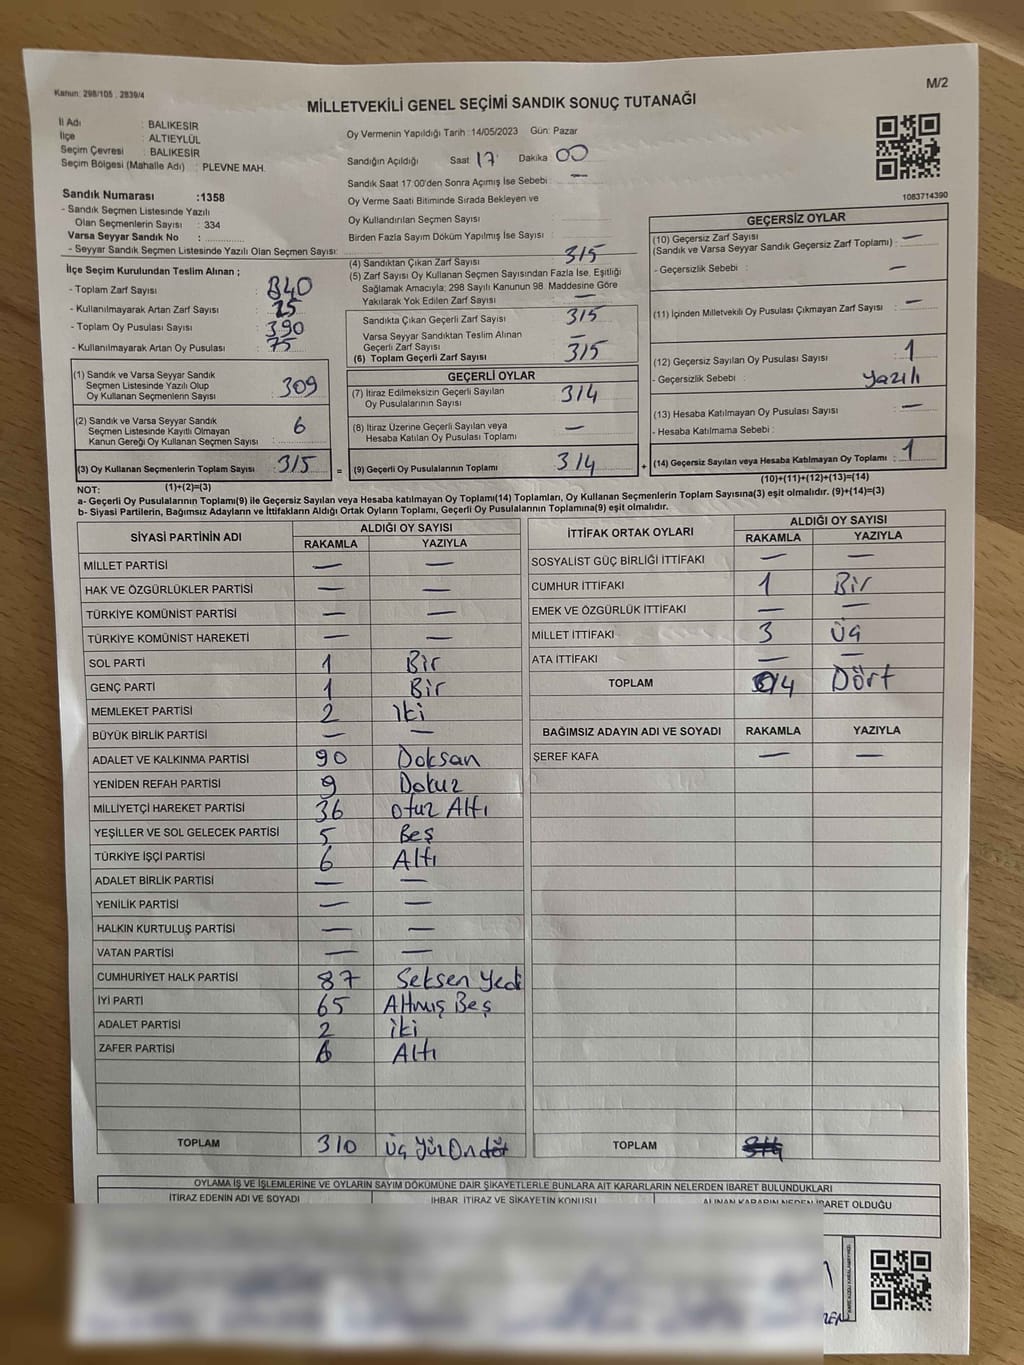 Kanun: 298/105 , 2839/4
M/2
MİLLETVEKİLİ GENEL SEÇİMİ SANDIK SONUÇ TUTANAĞI
İl Adı : BALIKESİR
İlçe : ALTIEYLÜL
Seçim Çevresi : BALIKESİR
Seçim Bölgesi (Mahalle Adı) : PLEVNE MAH.
Oy Vermenin Yapıldığı Tarih :14/05/2023 Gün: Pazar
Sandığın Açıldığı Saat 17 Dakika 00
Sandık Saat 17.00'den Sonra Açımış İse Sebebi : —
Oy Verme Saati Bitiminde Sırada Bekleyen ve
Oy Kullandırılan Seçmen Sayısı
Birden Fazla Sayım Döküm Yapılmış İse Sayısı :
1083714390
Sandık Numarası :1358
- Sandık Seçmen Listesinde Yazılı
Olan Seçmenlerin Sayısı : 334
Varsa Seyyar Sandık No :
- Seyyar Sandık Seçmen Listesinde Yazılı Olan Seçmen Sayısı:
İlçe Seçim Kurulundan Teslim Alınan ;
- Toplam Zarf Sayısı : 340
- Kullanılmayarak Artan Zarf Sayısı : 25
- Toplam Oy Pusulası Sayısı : 390
- Kullanılmayarak Artan Oy Pusulası : 75
(1) Sandık ve Varsa Seyyar Sandık
Seçmen Listesinde Yazılı Olup
Oy Kullanan Seçmenlerin Sayısı : 309
(2) Sandık ve Varsa Seyyar Sandık
Seçmen Listesinde Kayıtlı Olmayan
Kanun Gereği Oy Kullanan Seçmen Sayısı : 6
(3) Oy Kullanan Seçmenlerin Toplam Sayısı : 315
(1)+(2)=(3)
(4) Sandıktan Çıkan Zarf Sayısı : 315
(5) Zarf Sayısı Oy Kullanan Seçmen Sayısından Fazla İse, Eşitliği
Sağlamak Amacıyla; 298 Sayılı Kanunun 98. Maddesine Göre
Yakılarak Yok Edilen Zarf Sayısı : —
Sandıkta Çıkan Geçerli Zarf Sayısı : 315
Varsa Seyyar Sandıktan Teslim Alınan
Geçerli Zarf Sayısı : —
(6) Toplam Geçerli Zarf Sayısı : 315
GEÇERLİ OYLAR
(7) İtiraz Edilmeksizin Geçerli Sayılan
Oy Pusulalarının Sayısı : 314
(8) İtiraz Üzerine Geçerli Sayılan veya
Hesaba Katılan Oy Pusulası Toplamı : —
= (9) Geçerli Oy Pusulalarının Toplamı : 314
GEÇERSİZ OYLAR
(10) Geçersiz Zarf Sayısı
(Sandık ve Varsa Seyyar Sandık Geçersiz Zarf Toplamı) : —
- Geçersizlik Sebebi : —
(11) İçinden Milletvekili Oy Pusulası Çıkmayan Zarf Sayısı : —
(12) Geçersiz Sayılan Oy Pusulası Sayısı : 1
- Geçersizlik Sebebi : yazılı
(13) Hesaba Katılmayan Oy Pusulası Sayısı : —
- Hesaba Katılmama Sebebi :
+ (14) Geçersiz Sayılan veya Hesaba Katılmayan Oy Toplamı : 1
(10)+(11)+(12)+(13)=(14)
NOT:
a- Geçerli Oy Pusulalarının Toplamı(9) ile Geçersiz Sayılan veya Hesaba katılmayan Oy Toplamı(14) Toplamları, Oy Kullanan Seçmenlerin Toplam Sayısına(3) eşit olmalıdır. (9)+(14)=(3)
b- Siyasi Partilerin, Bağımsız Adayların ve İttifakların Aldığı Ortak Oyların Toplamı, Geçerli Oy Pusulalarının Toplamına(9) eşit olmalıdır.
SİYASİ PARTİNİN ADI ALDIĞI OY SAYISI
RAKAMLA YAZIYLA
MİLLET PARTİSİ — —
HAK VE ÖZGÜRLÜKLER PARTİSİ — —
TÜRKİYE KOMÜNİST PARTİSİ — —
TÜRKİYE KOMÜNİST HAREKETİ — —
SOL PARTİ 1 Bir
GENÇ PARTİ 1 Bir
MEMLEKET PARTİSİ 2 iki
BÜYÜK BİRLİK PARTİSİ — —
ADALET VE KALKINMA PARTİSİ 90 Doksan
YENİDEN REFAH PARTİSİ 9 Dokuz
MİLLİYETÇİ HAREKET PARTİSİ 36 otuz Altı
YEŞİLLER VE SOL GELECEK PARTİSİ 5 Beş
TÜRKİYE İŞÇİ PARTİSİ 6 Altı
ADALET BİRLİK PARTİSİ — —
YENİLİK PARTİSİ — —
HALKIN KURTULUŞ PARTİSİ — —
VATAN PARTİSİ — —
CUMHURİYET HALK PARTİSİ 87 Seksen Yedi
İYİ PARTİ 65 Altmış Beş
ADALET PARTİSİ 2 iki
ZAFER PARTİSİ 6 Altı
TOPLAM 310 Üç Yüz
İTTİFAK ORTAK OYLARI ALDIĞI OY SAYISI
RAKAMLA YAZIYLA
SOSYALİST GÜÇ BİRLİĞİ İTTİFAKI — —
CUMHUR İTTİFAKI 1 Bir
EMEK VE ÖZGÜRLÜK İTTİFAKI — —
MİLLET İTTİFAKI 3 Üç
ATA İTTİFAKI — —
TOPLAM 4 Dört
BAĞIMSIZ ADAYIN ADI VE SOYADI RAKAMLA YAZIYLA
ŞEREF KAFA — —
TOPLAM
OYLAMA İŞ VE İŞLEMLERİNE VE OYLARIN SAYIM DÖKÜMÜNE DAİR ŞİKAYETLERLE BUNLARA AİT KARARLARIN NELERDEN İBARET BULUNDUKLARI
İTİRAZ EDENİN ADI VE SOYADI İHBAR, İTİRAZ VE ŞİKAYETİN KONUSU ALINAN KARARIN NEDEN İBARET OLDUĞU